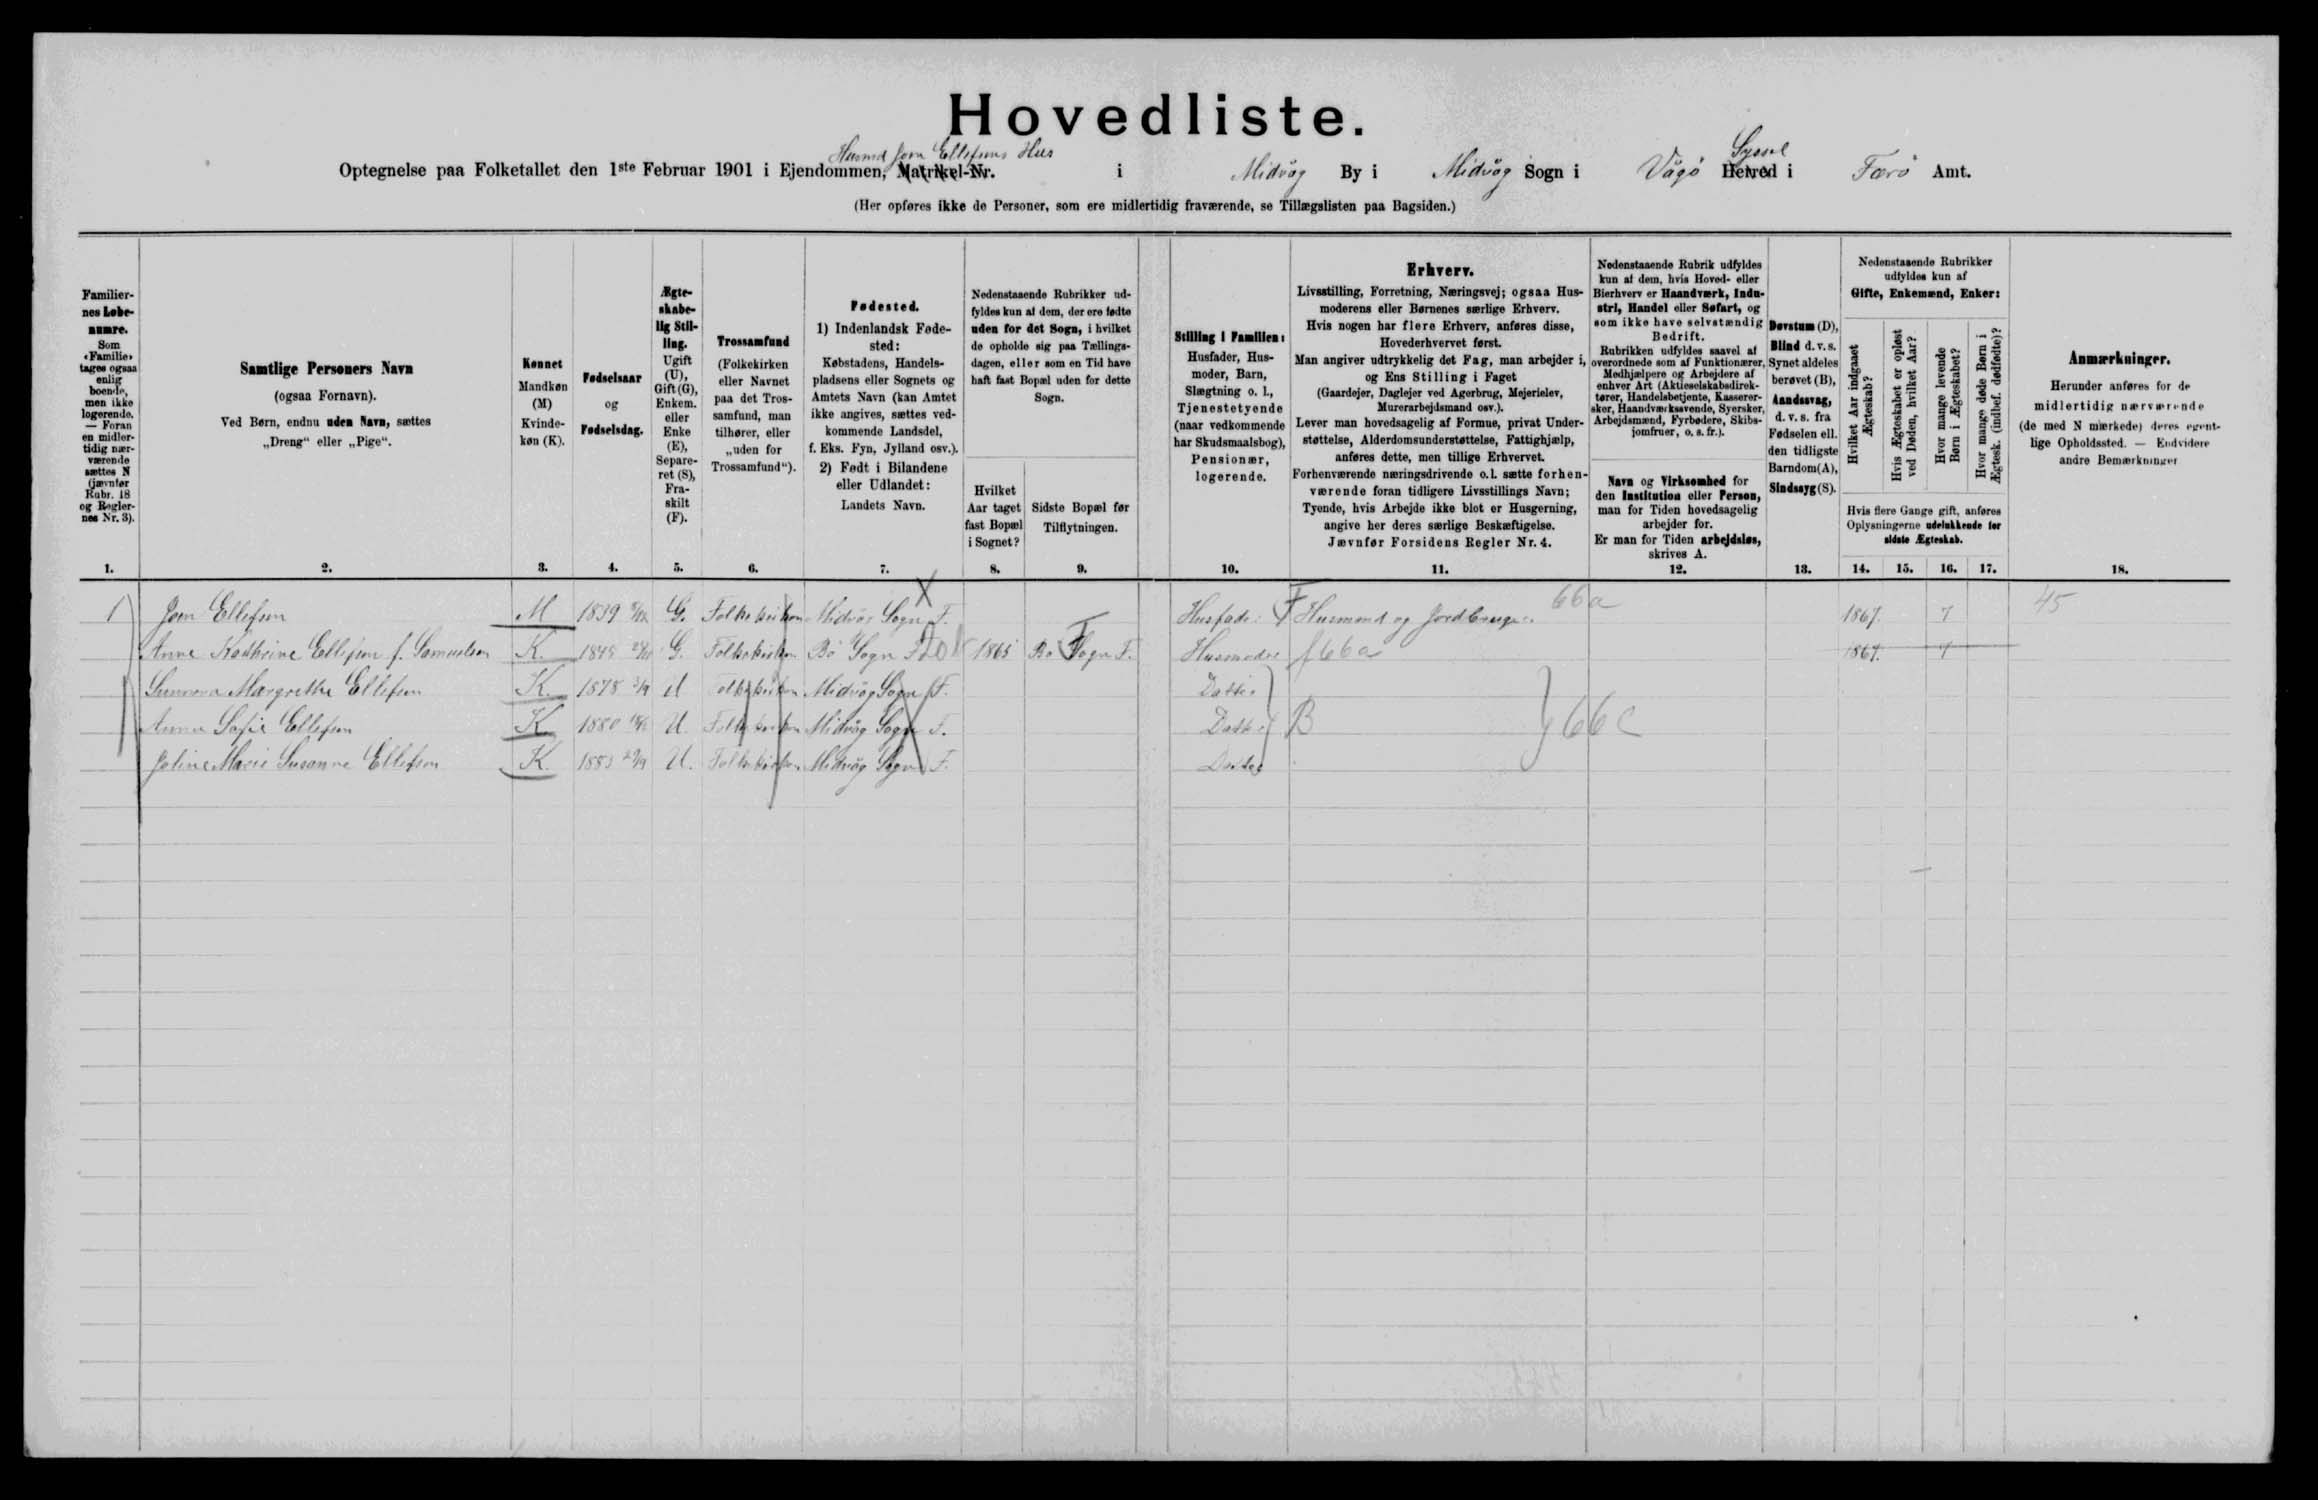 Hovedliste.
Husmd Joen Ellefsens Hus
Optegnelse paa Folketallet den 1ste Februar 1901 i Ejendommen, Matrikel-Nr. i Midvåg By i Midvåg Sogn i Vågø Herred Syssel i Færø Amt.
(Her opføres ikke de Personer, som ere midlertidig fraværende, se Tillægslisten paa Bagsiden.)
Familiernes Løbenumre.
Som «Familie» tages ogsaa enlig boende, men ikke logerende. — Foran en midlertidig nærværende sættes N (jævnfør Rubr. 18 og Reglernes Nr. 3).
1.
Samtlige Personers Navn
(ogsaa Fornavn).
Ved Børn, endnu uden Navn, sættes
„Dreng“ eller „Pige“.
2.
Kønnet
Mandkøn (M)
Kvindekøn (K).
3.
Fødselsaar
og
Fødselsdag.
4.
Ægteskabelig Stilling.
Ugift (U), Gift (G), Enkem. eller Enke (E), Separeret (S), Fraskilt (F).
5.
Trossamfund
(Folkekirken eller Navnet paa det Trossamfund, man tilhører, eller „uden for Trossamfund“).
6.
Fødested.
1) Indenlandsk Fødested:
Købstadens, Handelspladsens eller Sognets og Amtets Navn (kan Amtet ikke angives, sættes vedkommende Landsdel, f. Eks. Fyn, Jylland osv.).
2) Født i Bilandene eller Udlandet:
Landets Navn.
7.
Nedenstaaende Rubrikker udfyldes kun af dem, der ere fødte uden for det Sogn, i hvilket de opholde sig paa Tællingsdagen, eller som en Tid have haft fast Bopæl uden for dette Sogn.
Hvilket Aar taget fast Bopæl i Sognet?
8.
Sidste Bopæl før Tilflytningen.
9.
Stilling i Familien:
Husfader, Husmoder, Barn, Slægtning o. l., Tjenestetyende (naar vedkommende har Skudsmaalsbog), Pensionær, logerende.
10.
Erhverv.
Livsstilling, Forretning, Næringsvej; ogsaa Husmoderens eller Børnenes særlige Erhverv.
Hvis nogen har flere Erhverv, anføres disse, Hovederhvervet først.
Man angiver udtrykkelig det Fag, man arbejder i, og Ens Stilling i Faget
(Gaardejer, Daglejer ved Agerbrug, Mejerielev, Murerarbejdsmand osv.).
Lever man hovedsagelig af Formue, privat Understøttelse, Alderdomsunderstøttelse, Fattighjælp, anføres dette, men tillige Erhvervet.
Forhenværende næringsdrivende o. l. sætte forhenværende foran tidligere Livsstillings Navn;
Tyende, hvis Arbejde ikke blot er Husgerning, angive her deres særlige Beskæftigelse.
Jævnfør Forsidens Regler Nr. 4.
11.
Nedenstaaende Rubrik udfyldes kun af dem, hvis Hoved- eller Bierhverv er Haandværk, Industri, Handel eller Søfart, og som ikke have selvstændig Bedrift.
Rubrikken udfyldes saavel af overordnede som af Funktionærer, Medhjælpere og Arbejdere af enhver Art (Aktieselskabsdirektører, Handelsbetjente, Kasserersker, Haandværkssvende, Syersker, Arbejdsmænd, Fyrbødere, Skibsjomfruer, o. s. fr.).
Navn og Virksomhed for den Institution eller Person, man for Tiden hovedsagelig arbejder for.
Er man for Tiden arbejdsløs, skrives A.
12.
Døvstum (D), Blind d. v. s. Synet aldeles berøvet (B), Aandssvag, d. v. s. fra Fødselen ell. den tidligste Barndom (A), Sindssyg (S).
13.
Nedenstaaende Rubrikker udfyldes kun af
Gifte, Enkemænd, Enker:
Hvilket Aar indgaaet Ægteskab?
Hvis Ægteskabet er opløst ved Døden, hvilket Aar?
Hvor mange levende Børn i Ægteskabet?
Hvor mange døde Børn i Ægtesk. (indbef. dødfødte)?
Hvis flere Gange gift, anføres Oplysningerne udelukkende for sidste Ægteskab.
14. 15. 16. 17.
Anmærkninger.
Herunder anføres for de midlertidig nærværende (de med N mærkede) deres egentlige Opholdssted. — Endvidere andre Bemærkninger
18.
1 Joen Ellefsen M 1839 G. Folkekirken Midvåg Sogn F. Husfader F Husmand og Jordbruger 66a 1867. 7 45
Anne Kathrine Ellefsen f. Samuelsen K. 1845 G. Folkekirken Bø Sogn F. 1865 Bø Sogn F. Husmoder f66a 1867. 7
Sunneva Margrethe Ellefsen K. 1878 U Folkekirken Midvåg Sogn F. Datter
Anna Sofie Ellefsen K. 1880 U. Folkekirken Midvåg Sogn F. Datter B 66c
Joline Marie Susanne Ellefsen K. 1883 U. Folkekirken Midvåg Sogn F. Datter